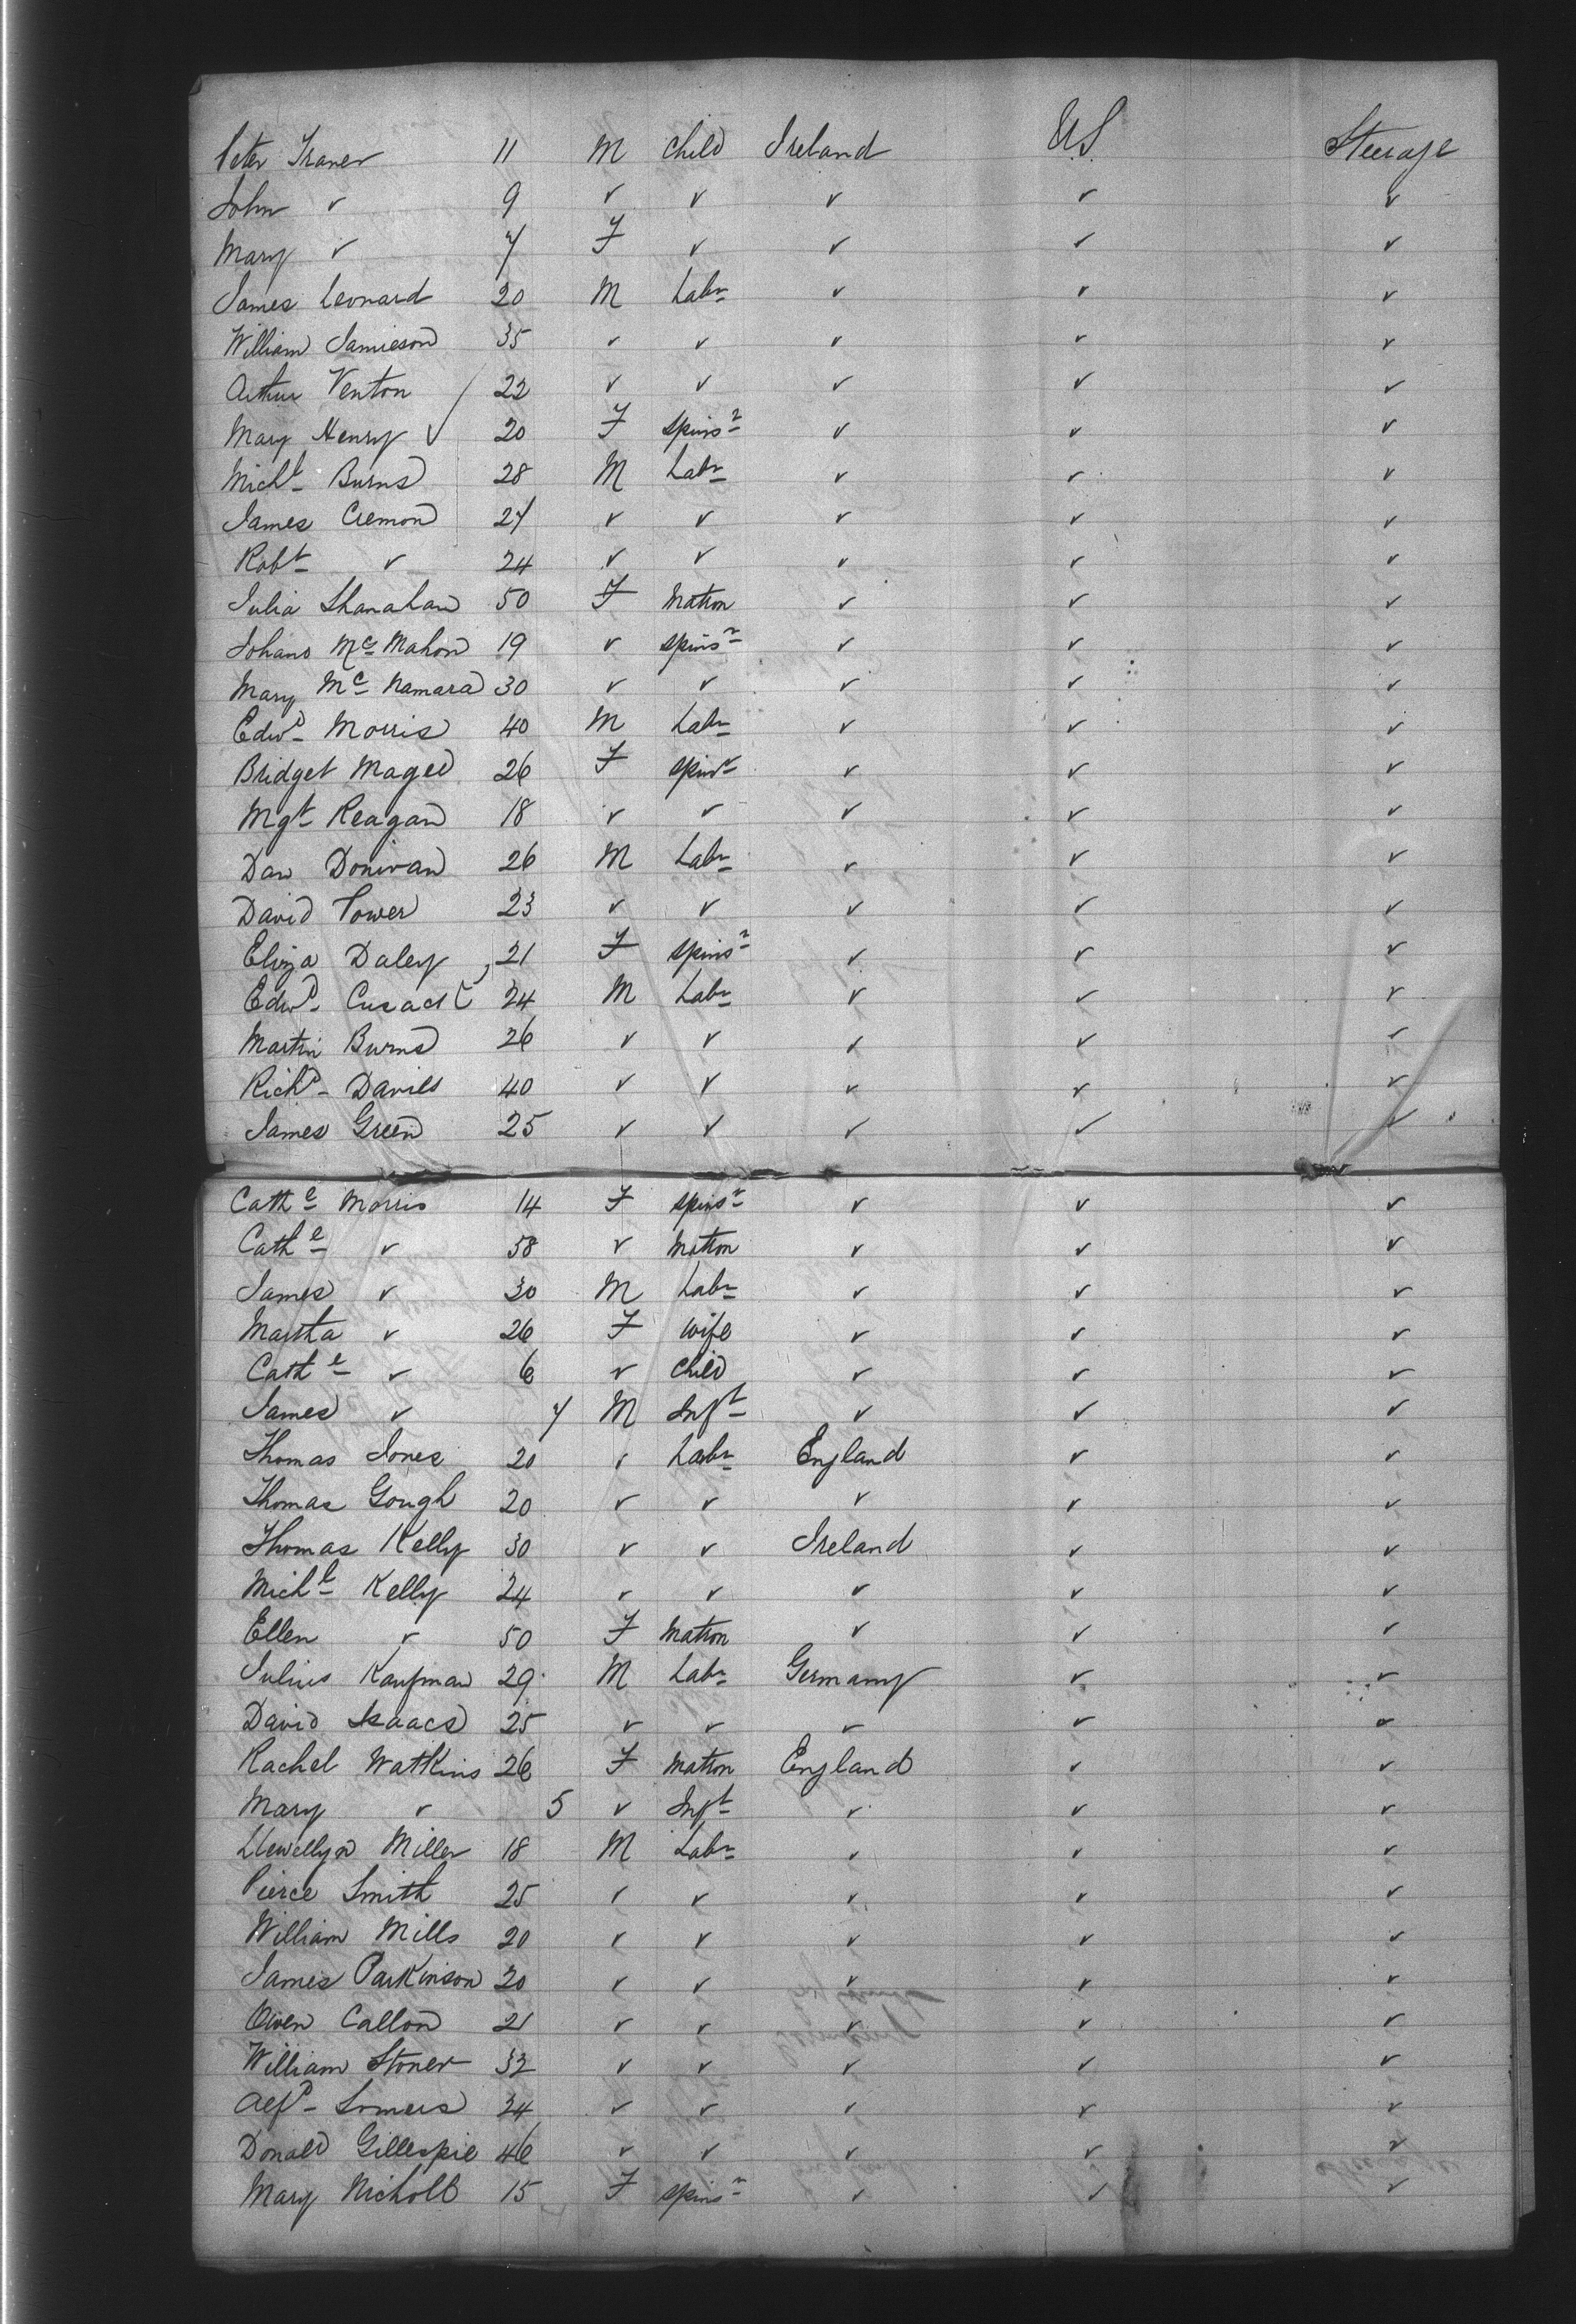 Peter Traner 11 M child Ireland US Steerage
John " 9 " " " " "
Mary " 7 F " " " "
James Leonard 20 M Labr " " "
William Jamieson 35 " " " " "
Arthur Venton 22 " " " " "
Mary Henry 20 F spinsr " " "
Michl Burns 28 M Labr " " "
James Cremon 27 " " " " "
Robt " 24 " " " " "
Julia Shanahan 50 F Matron " " "
Johana McMahon 19 " spinsr " " "
Mary McNamara 30 " " " " "
Edwd Morris 40 M Labr " " "
Bridget Magee 26 F spinr " " "
Mgt Reagan 18 " " " " "
Dan Donivan 26 M Labr " " "
David Power 23 " " " " "
Eliza Daley 21 F spinsr " " "
Edwd Cusack 24 M Labr " " "
Martin Burns 26 " " " " "
Richd Davies 40 " " " " "
James Green 25 " " " " "
Cathe Morris 14 F spinsr " " "
Cathe " 58 " Matron " " "
James " 30 M Labr " " "
Martha " 26 F wife " " "
Cathe " 6 " child " " "
James " 7 M Inft " " "
Thomas Jones 20 " Labr England " "
Thomas Gough 20 " " " " "
Thomas Kelly 30 " " Ireland " "
Michl Kelly 24 " " " " "
Ellen " 50 F Matron " " "
Julius Kaufman 29 M Labr Germany " "
David Isaacs 25 " " " " "
Rachel Watkins 26 F Matron England " "
Mary " 5 " Inft " " "
Llewellyn Miller 18 M Labr " " "
Pierce Smith 25 " " " " "
William Mills 20 " " " " "
James Parkinson 20 " " " " "
Owen Callon 21 " " " " "
William Stoner 32 " " " " "
Alfd Somers 24 " " " " "
Donald Gillespie 46 " " " " "
Mary Nicholl 15 F spinsr " " "